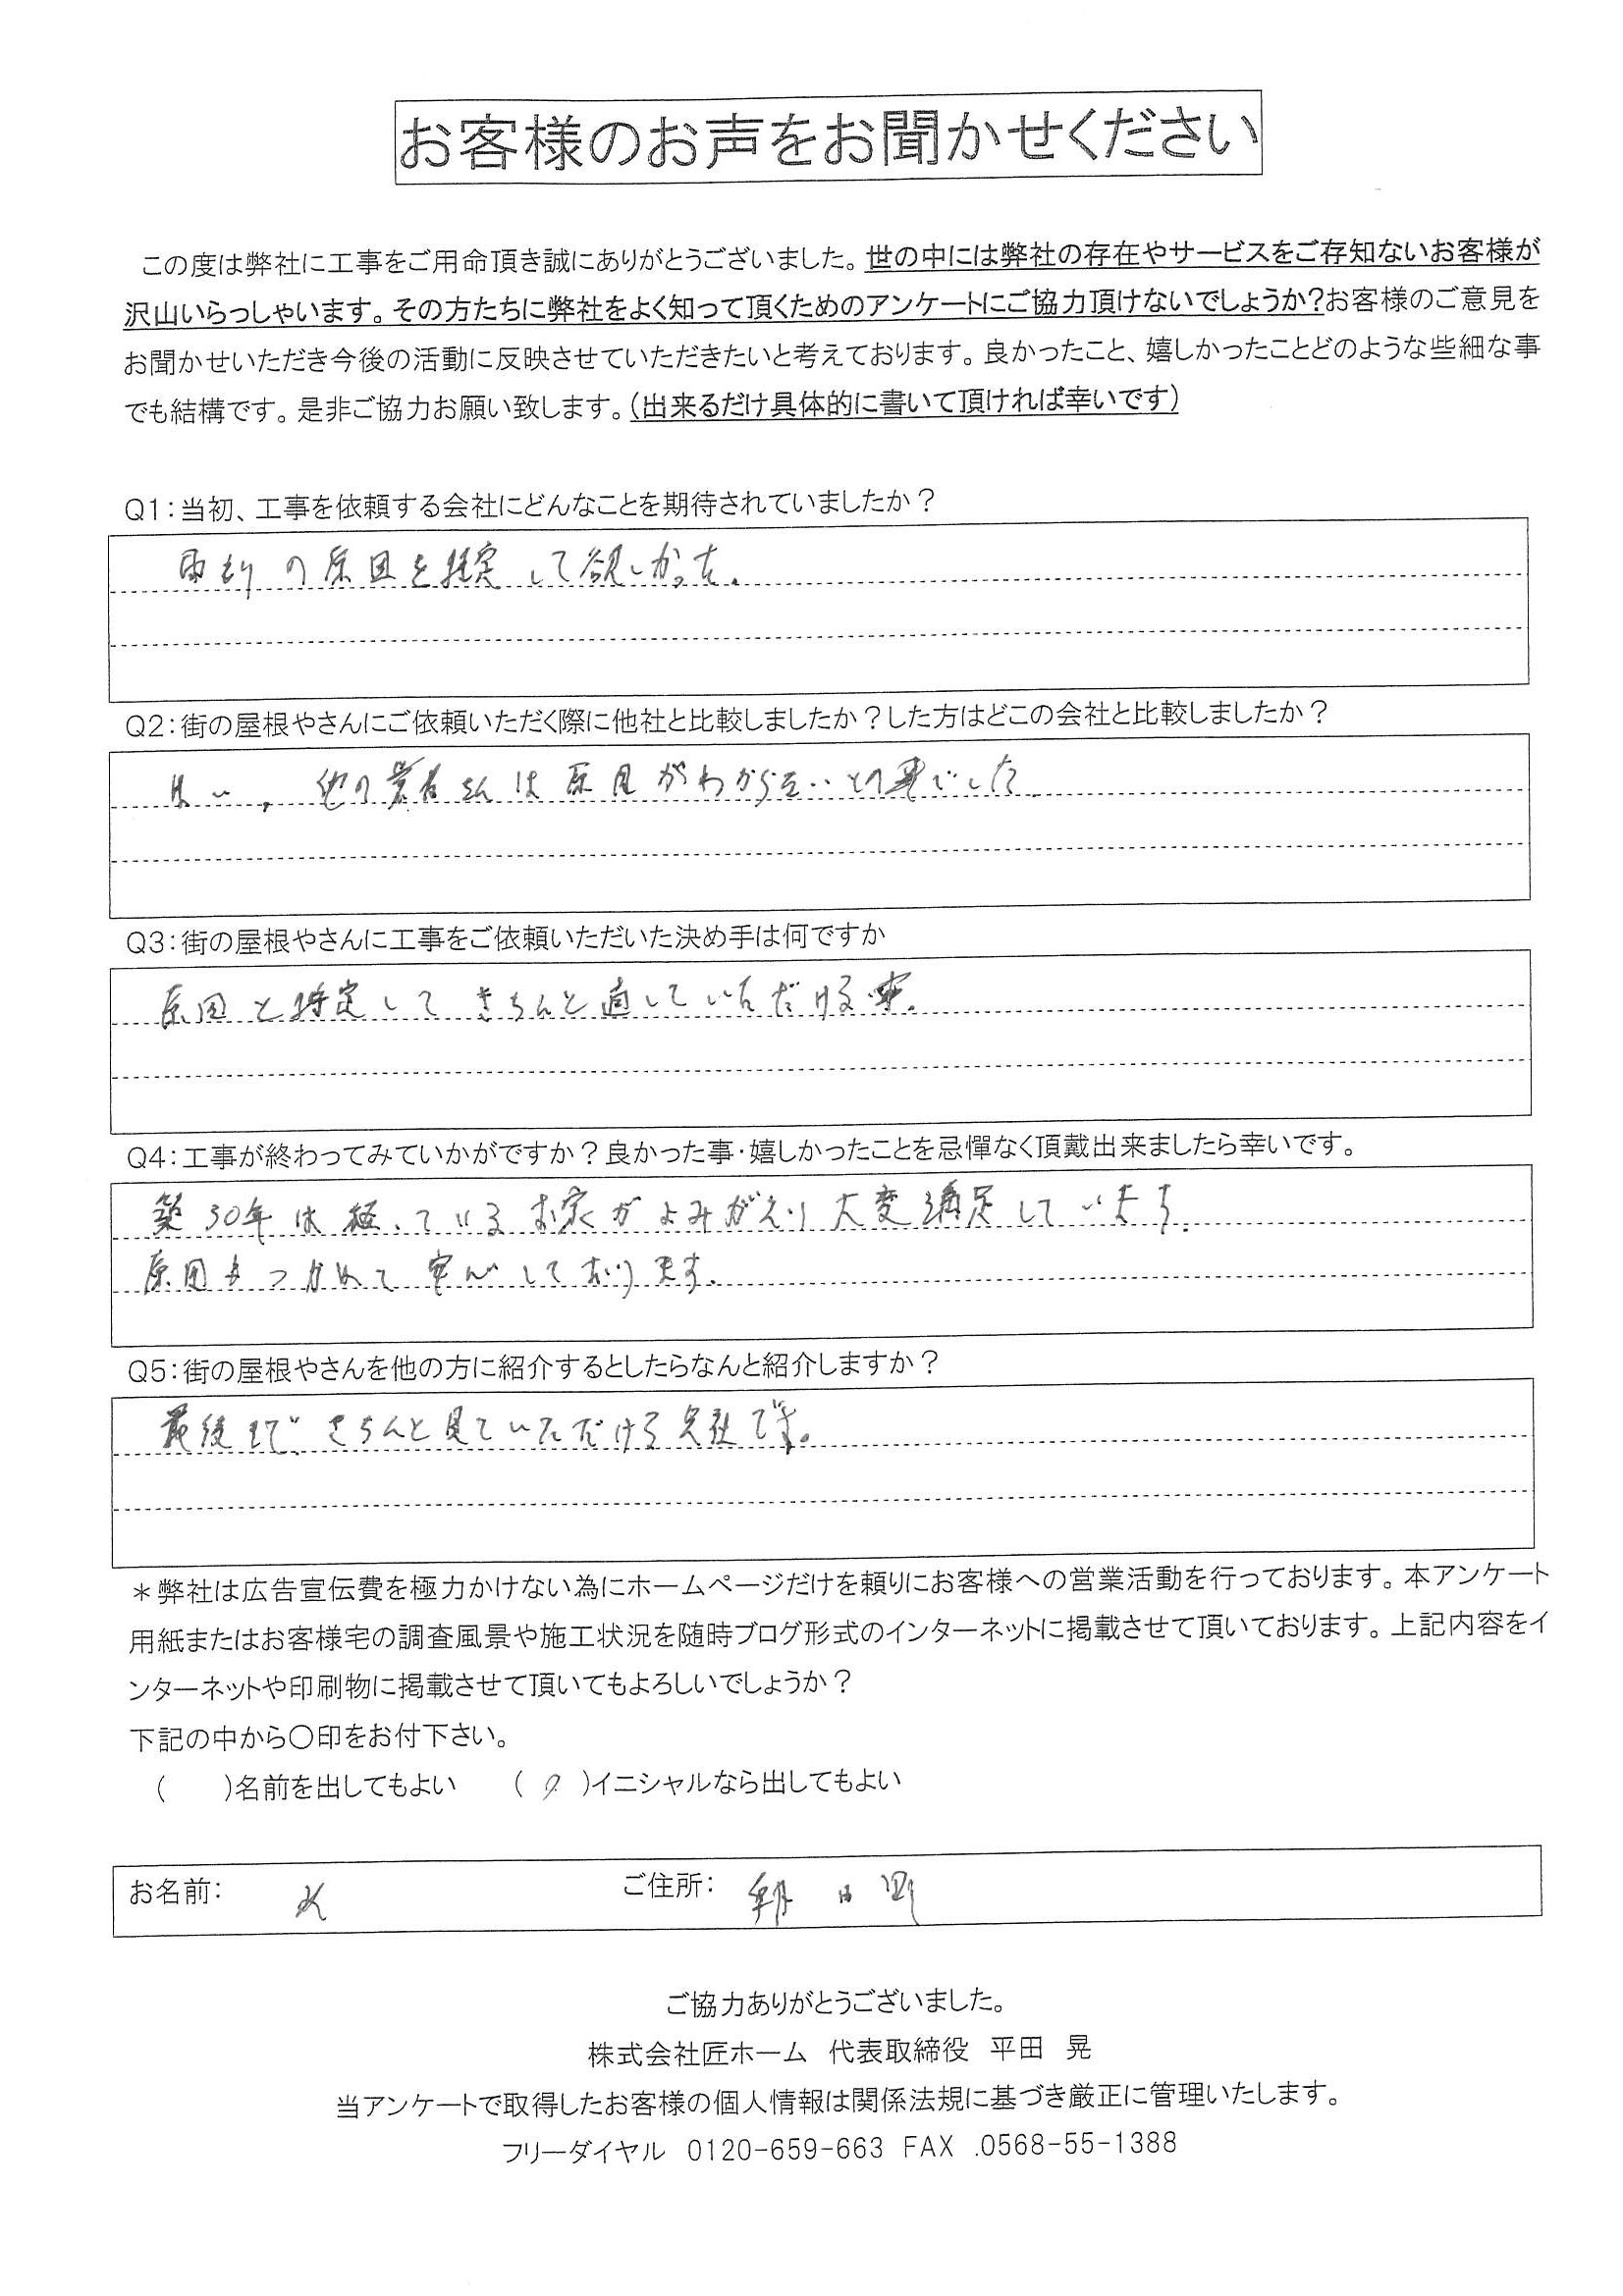 お客様のお声をお聞かせください
この度は弊社に工事をご用命頂き誠にありがとうございました。世の中には弊社の存在やサービスをご存知ないお客様が
沢山いらっしゃいます。その方たちに弊社をよく知って頂くためのアンケートにご協力頂けないでしょうか?お客様のご意見を
お聞かせいただき今後の活動に反映させていただきたいと考えております。良かったこと、嬉しかったことどのような些細な事
でも結構です。是非ご協力お願い致します。(出来るだけ具体的に書いて頂ければ幸いです)
Q1:当初、工事を依頼する会社にどんなことを期待されていましたか?
雨もりの原因を特定して欲しかった。
Q2:街の屋根やさんにご依頼いただく際に他社と比較しましたか?した方はどこの会社と比較しましたか?
はい、他の業者さんは原因がわからないとの事でした
Q3:街の屋根やさんに工事をご依頼いただいた決め手は何ですか
原因を特定してきちんと直していただける事。
Q4:工事が終わってみていかがですか?良かった事・嬉しかったことを忌憚なく頂戴出来ましたら幸いです。
築30年は経っているお家がよみがえり大変満足しています。
原因もつかめて安心しております。
Q5:街の屋根やさんを他の方に紹介するとしたらなんと紹介しますか?
最後まできちんと見ていただける会社です。
*弊社は広告宣伝費を極力かけない為にホームページだけを頼りにお客様への営業活動を行っております。本アンケート
用紙またはお客様宅の調査風景や施工状況を随時ブログ形式のインターネットに掲載させて頂いております。上記内容をイ
ンターネットや印刷物に掲載させて頂いてもよろしいでしょうか?
下記の中から〇印をお付下さい。
(　　)名前を出してもよい　　(○)イニシャルなら出してもよい
お名前:　　ご住所: 朝日町
ご協力ありがとうございました。
株式会社匠ホーム　代表取締役　平田　晃
当アンケートで取得したお客様の個人情報は関係法規に基づき厳正に管理いたします。
フリーダイヤル　0120-659-663 FAX .0568-55-1388